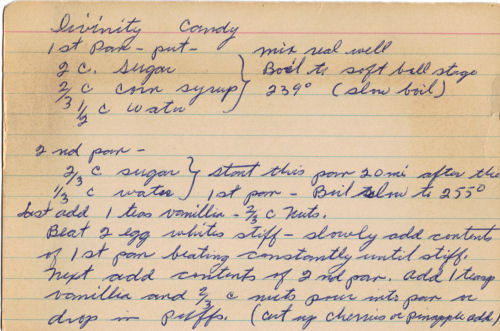 Divinity Candy
1st Pan - put - mix real well
2 c. sugar Boil to soft ball stage
2/3 c corn syrup 239° (slow boil)
1/2 c water
2nd pan -
2/3 c sugar start this pan 20 mi after the
1/3 c water 1st pan - Boil slow to 255°
Last add 1 teas vanillia - 2/3 c nuts.
Beat 2 egg whites stiff - slowly add contents
of 1st pan beating constantly until stiff.
Next add contents of 2nd pan. add 1 teasp
vanillia and 2/3 c nuts pour into pan or
drop in puffs. (cut up cherries or pineapple add)